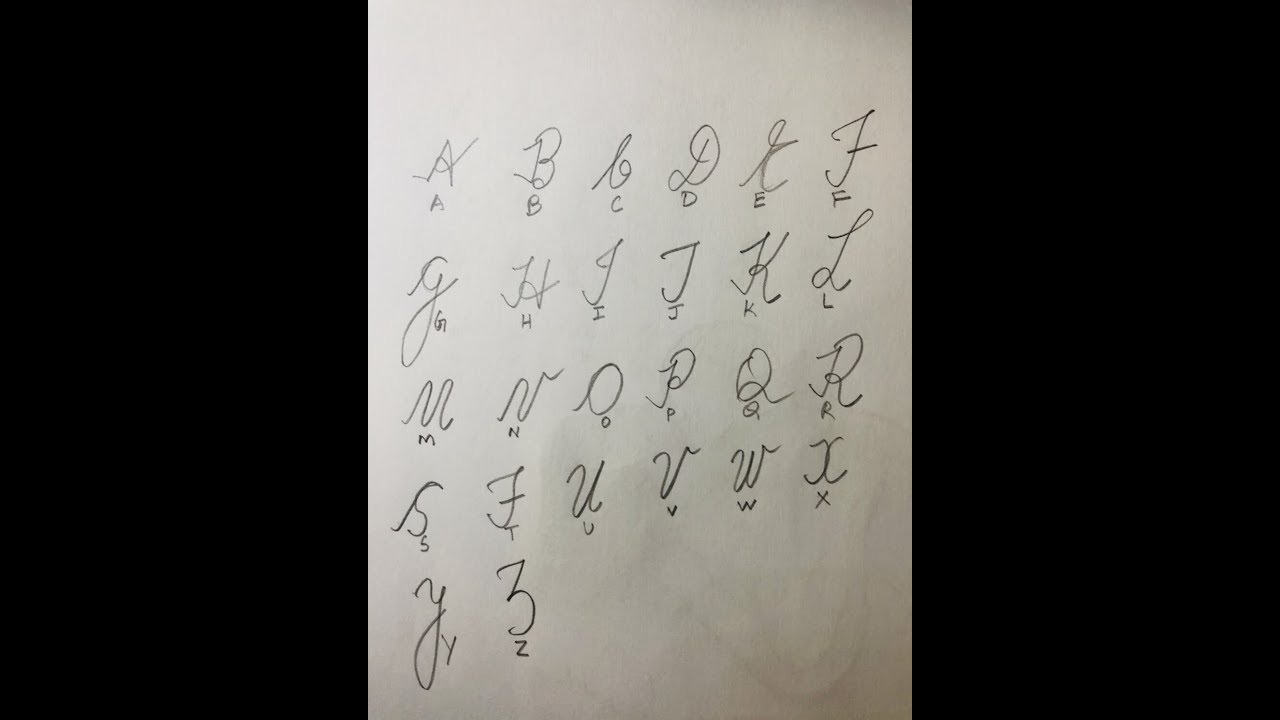 A B C D E F
A B C D E F
G H I J K L
G H I J K L
M N O P Q R
M N O P Q R
S T U V W X
S T U V W X
Y Z
Y Z